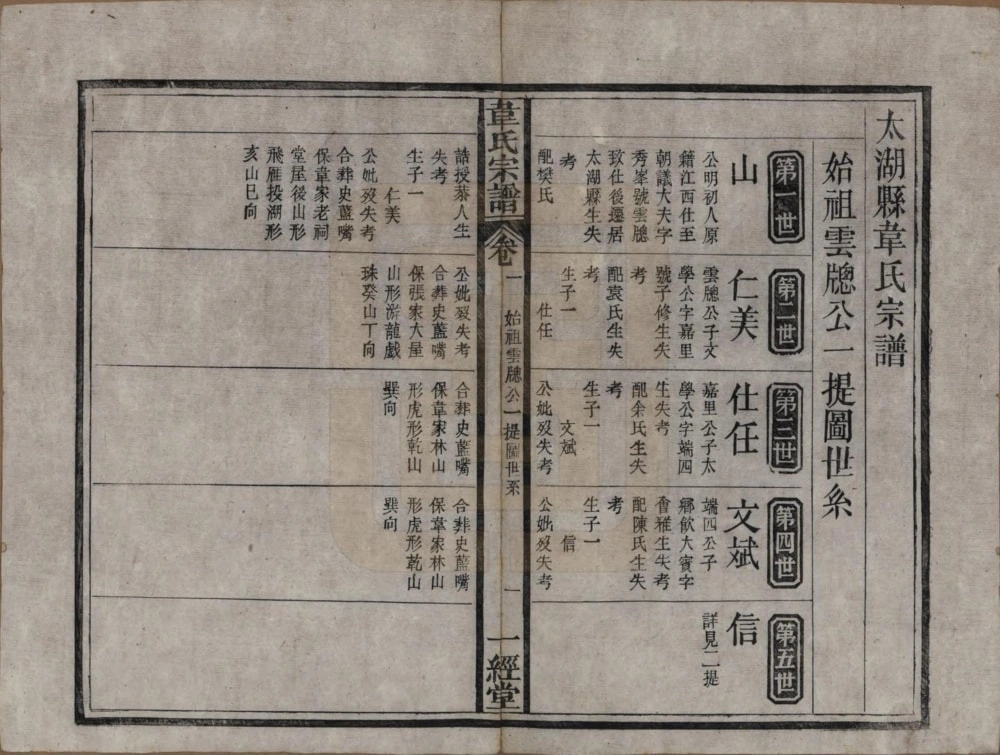 太湖縣韋氏宗譜
始祖雲牕公一提圖世系
第一世
山
公明初人原
籍江西仕至
朝議大夫字
秀峯號雲牕
致仕後遷居
太湖縣生失
考
配樊氏
誥授恭人生
失考
生子一
仁美
公妣歿失考
合葬史藍嘴
保韋家老祠
堂屋後山形
飛雁投湖形
亥山巳向
第二世
仁美
雲牕公子文
學公字嘉里
號子修生失
考
配袁氏生失
考
生子一
仕任
公妣歿失考
合葬史藍嘴
保張家大屋
山形游龍戲
珠癸山丁向
第三世
仕任
嘉里公子太
學公字端四
生失考
配余氏生失
考
生子一
文斌
公妣歿失考
合葬史藍嘴
保韋家林山
形虎形乾山
巽向
第四世
文斌
端四公子
鄉飲大賓字
會雅生失考
配陳氏生失
考
生子一
信
公妣歿失考
合葬史藍嘴
保韋家林山
形虎形乾山
巽向
第五世
信
詳見二提
韋氏宗譜
卷一
始祖雲牕公一提圖世系
一
一經堂